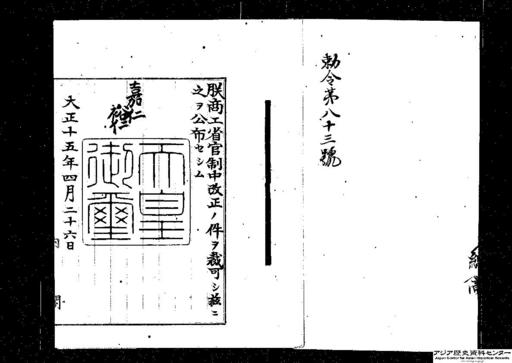 勅令第八十三號
朕商工省官制中改正ノ件ヲ裁可シ茲ニ
之ヲ公布セシム
嘉仁
裕仁
天皇
御璽
大正十五年四月二十六日
内閣
アジア歴史資料センター
Japan Center for Asian Historical Records